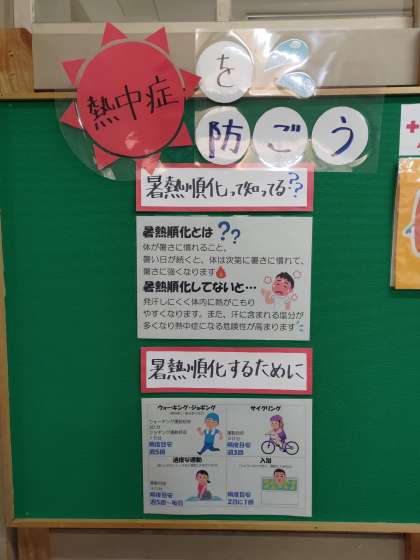 熱中症を
防ごう
暑熱順化って知ってる??
暑熱順化とは??
体が暑さに慣れること。
暑い日が続くと、体は次第に暑さに慣れて、
暑さに強くなります
暑熱順化してないと…
発汗しにくく体内に熱がこもり
やすくなります。また、汗に含まれる塩分が
多くなり熱中症になる危険性が高まります
暑熱順化するために
ウォーキング・ジョギング
頻度目安
週5回
サイクリング
頻度目安
週3回
適度な運動
頻度目安
週5回~毎日
入浴
頻度目安
2日に1回